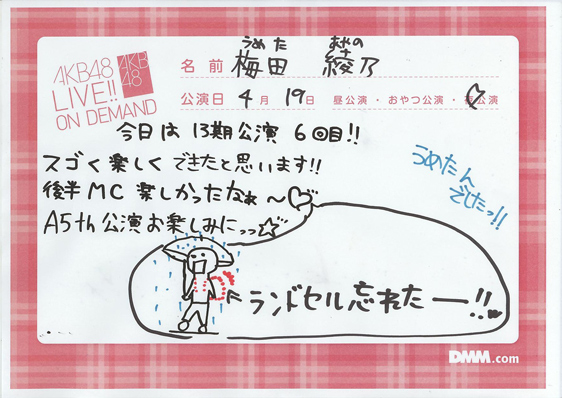 AKB48
LIVE!!
ON DEMAND
AKB
48
うめ た あやの
名前 梅田 綾乃
公演日 4月 19日 昼公演・おやつ公演・夜公演
今日は 13期公演 6回目!!
スゴく楽しくできたと思います!!
後半MC 楽しかったなぁ〜
A5th公演お楽しみにっっ☆
うめたん
でしたっ!!
ランドセル忘れたー!!
DMM.com